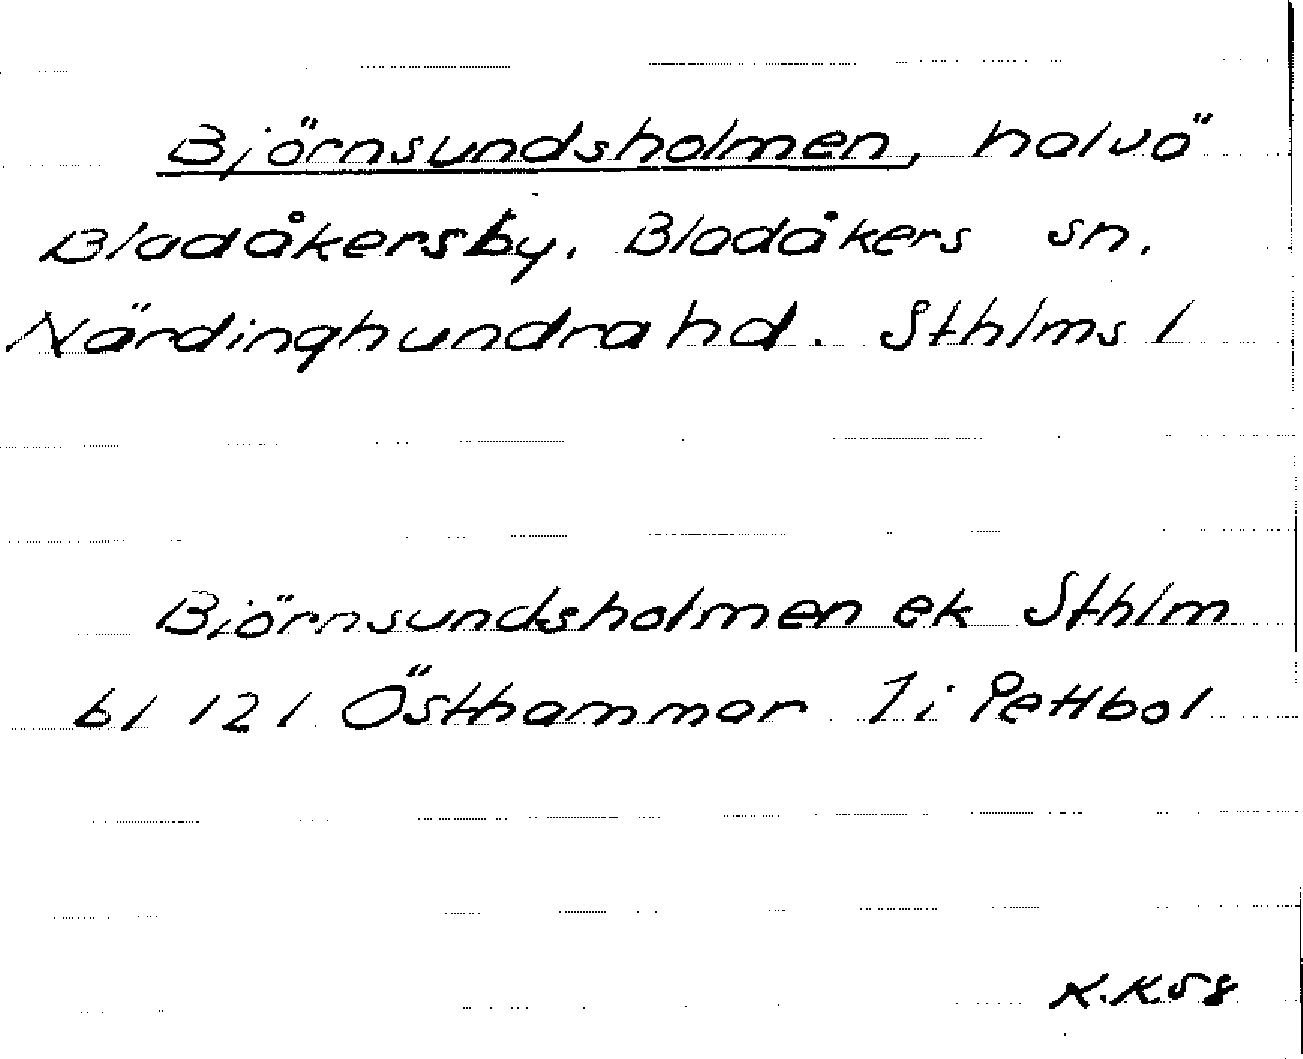 Björnsundsholmen, halvö
Bladåkersby, Bladåkers sn.
Närdinghundra hd. Sthlms l
Björnsundsholmen ek Sthlm
bl 121 Östhammar 1 i Pettbol
K.K58